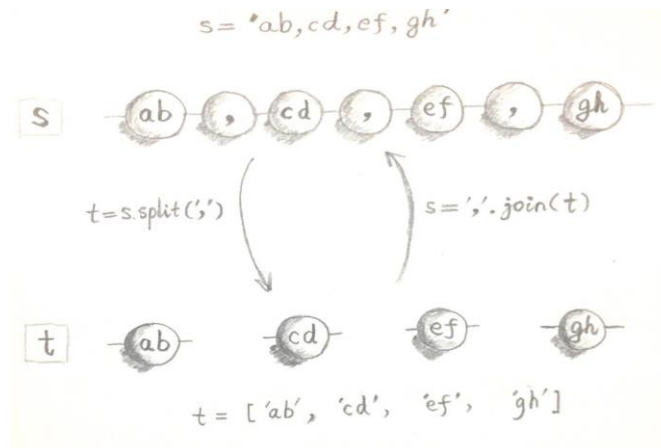 s= 'ab,cd,ef,gh'
s
ab , cd , ef , gh
t=s.split(',')
s=','.join(t)
t
ab cd ef gh
t = ['ab', 'cd', 'ef', 'gh']